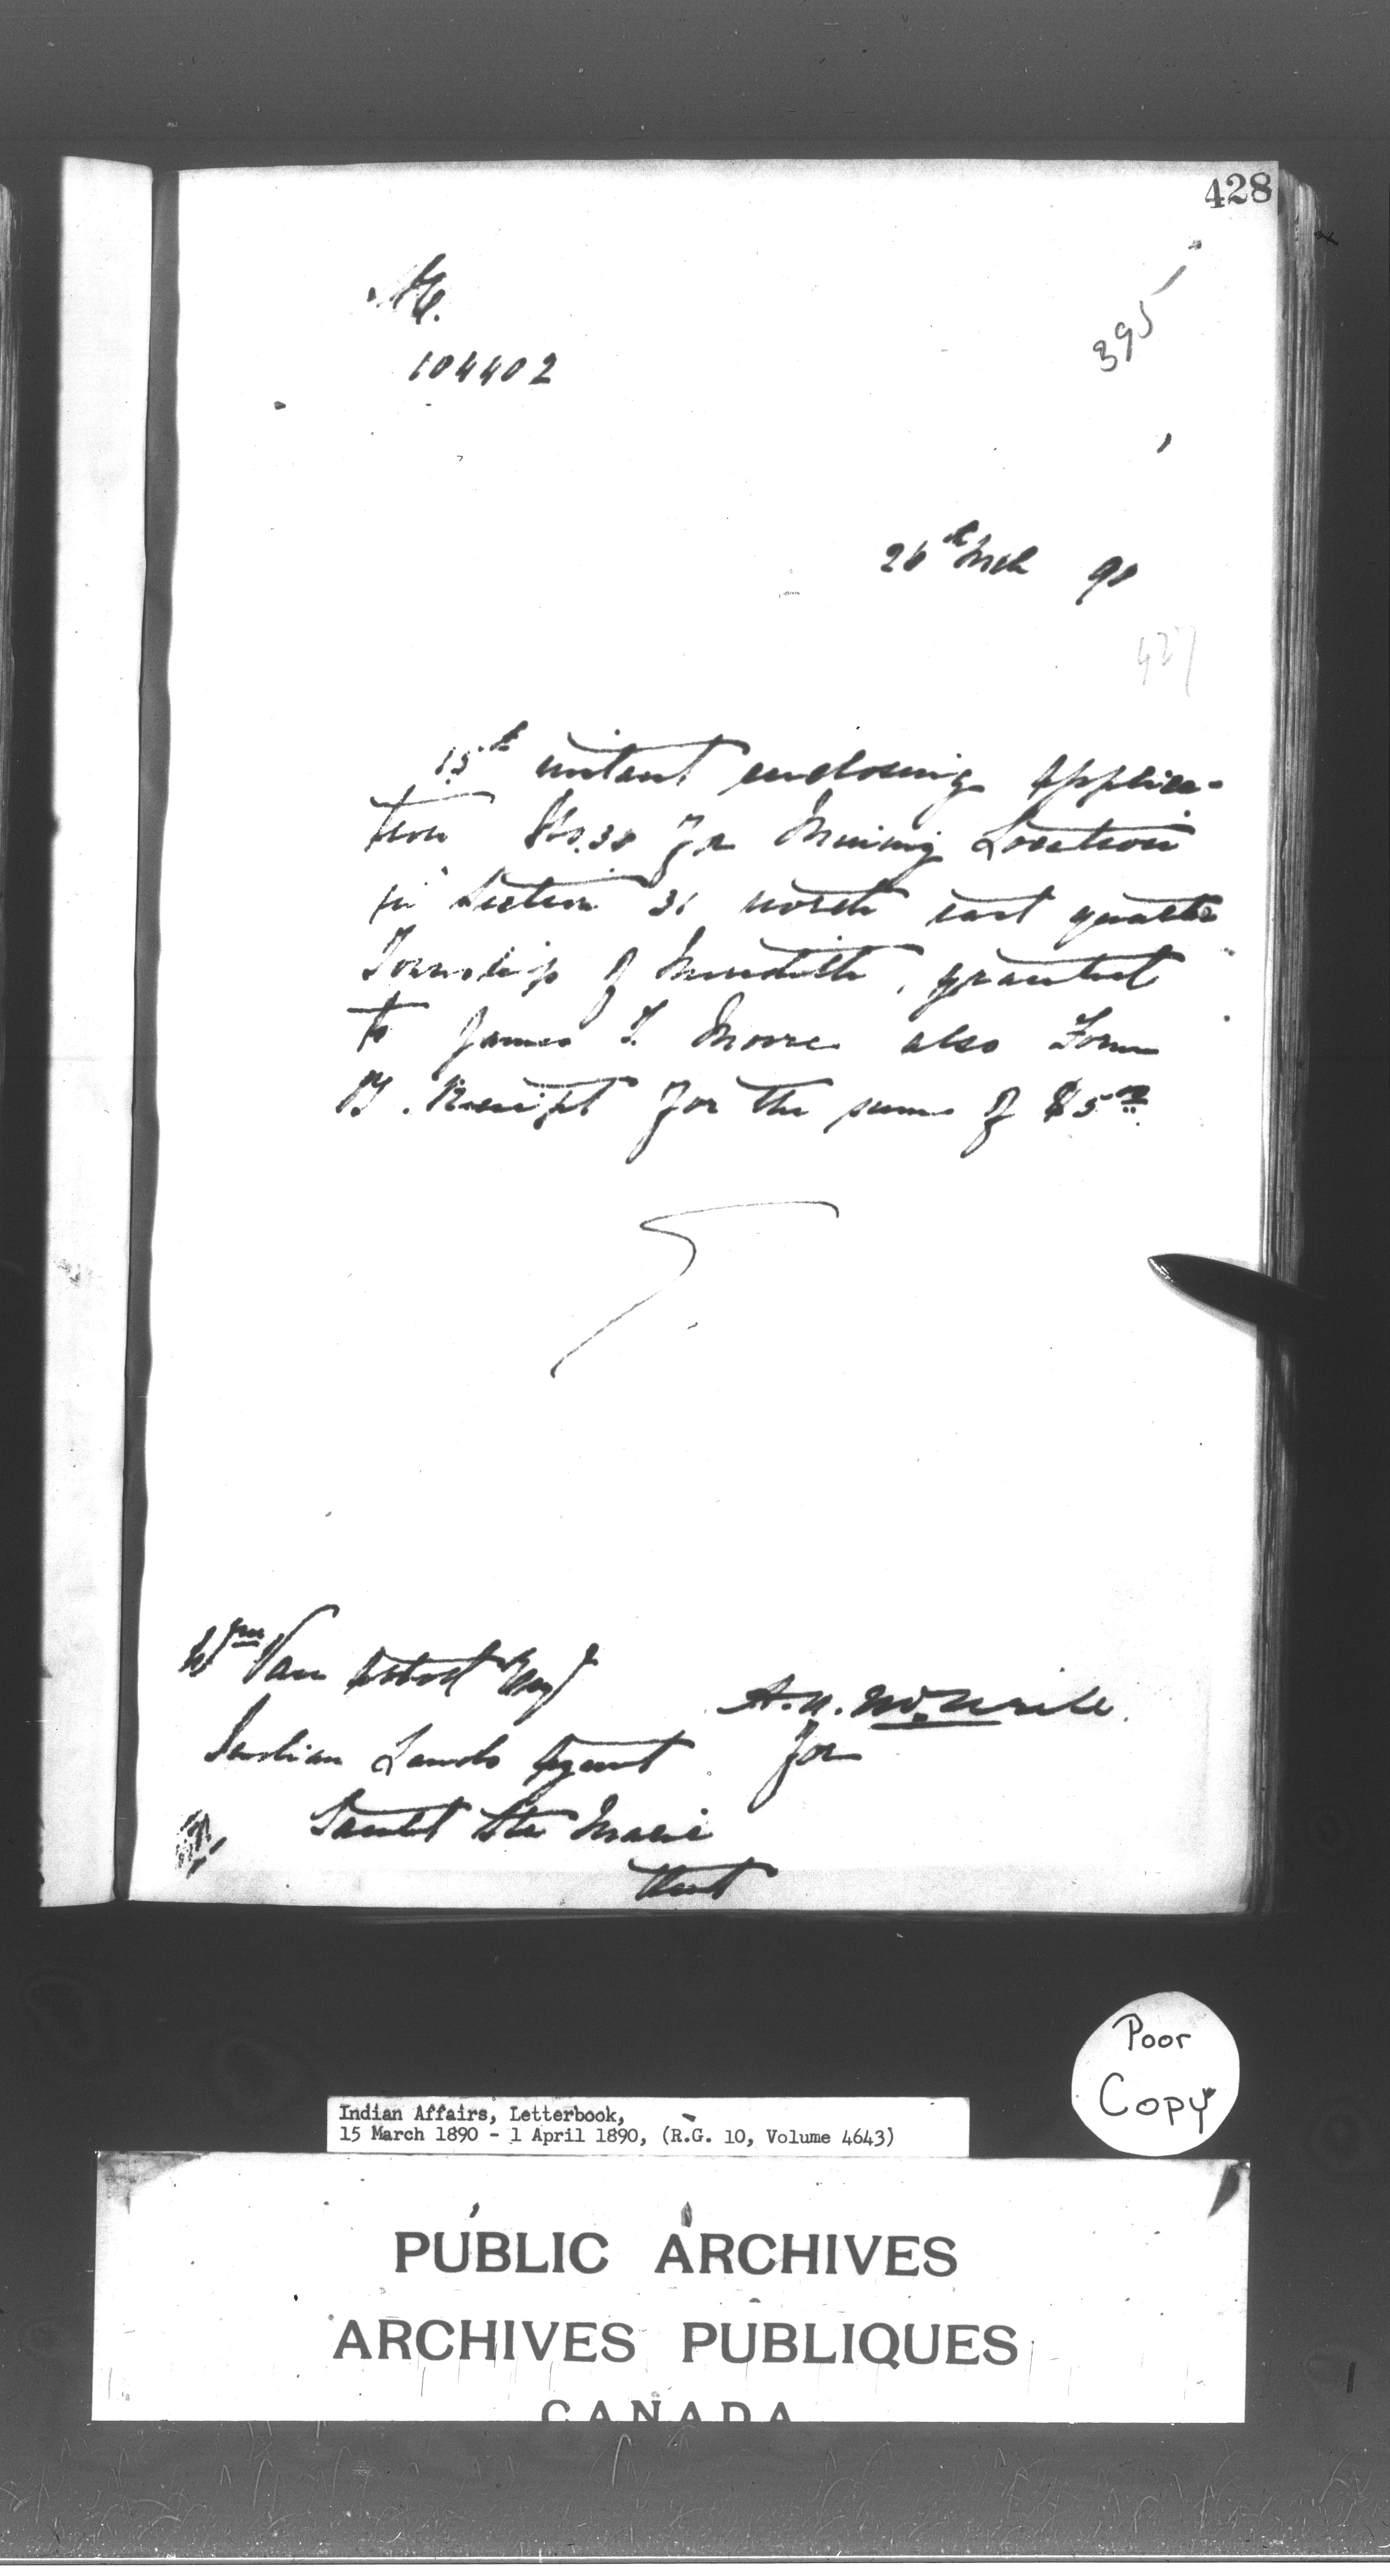 428
395
104402
26th Mch 90
427
15th instant enclosing Applica-
tion No. 38 for Mining Location
in Section 31 north east quarter
Township of Meredith, granted
to James T. Moore also Form
H. Receipt for the sum of $5.00
Wm Van Abbott Esq
A.N. McNeill
Indian Lands Agent
for
Sault Ste Marie
Ont
Poor
Copy
Indian Affairs, Letterbook,
15 March 1890 - 1 April 1890, (R.G. 10, Volume 4643)
PUBLIC ARCHIVES
ARCHIVES PUBLIQUES
CANADA